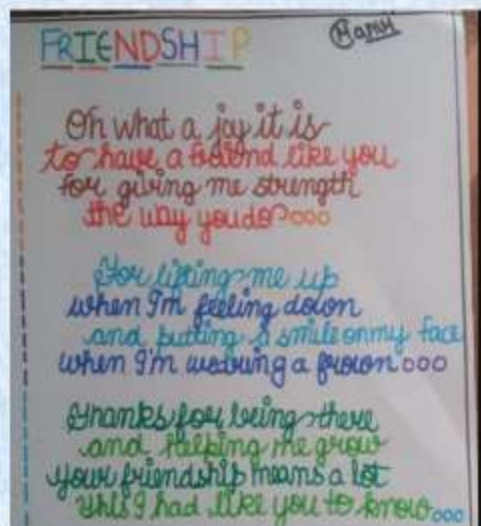 FRIENDSHIP
Manvi
Oh what a joy it is
to have a friend like you
for giving me strength
the way you do ooo
For lifting me up
when I'm feeling down
and putting a smile on my face
when I'm wearing a frown ooo
Thanks for being there
and helping me grow
your friendship means a lot
this I had like you to know ooo